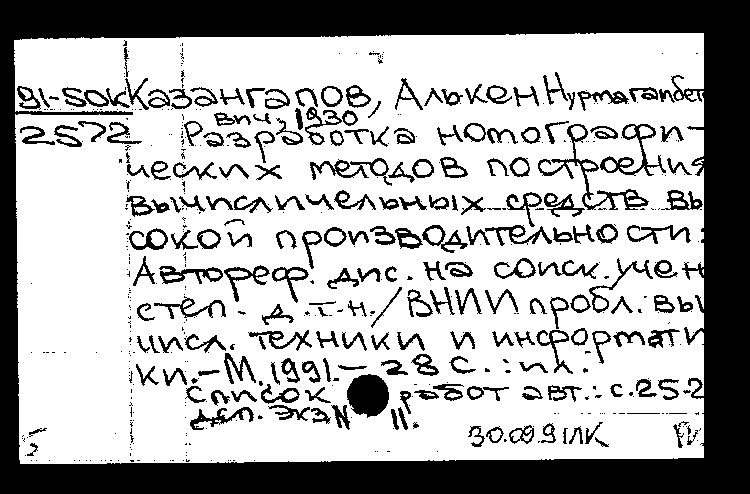 91-50к Казангапов, Алькен Нурмагамбет
вич, 1930
2572 Разработка номографи-
ческих методов построения
вычислительных средств вы
сокой производительности:
Автореф. дис. на соиск. учен
степ. д.т.н./ВНИИ пробл. вы
числ. техники и информати
ки.-М., 1991.- 28 с.:ил.
Список работ авт.: с.25-2
деп. экз N 11.
30.09.91 ЛК